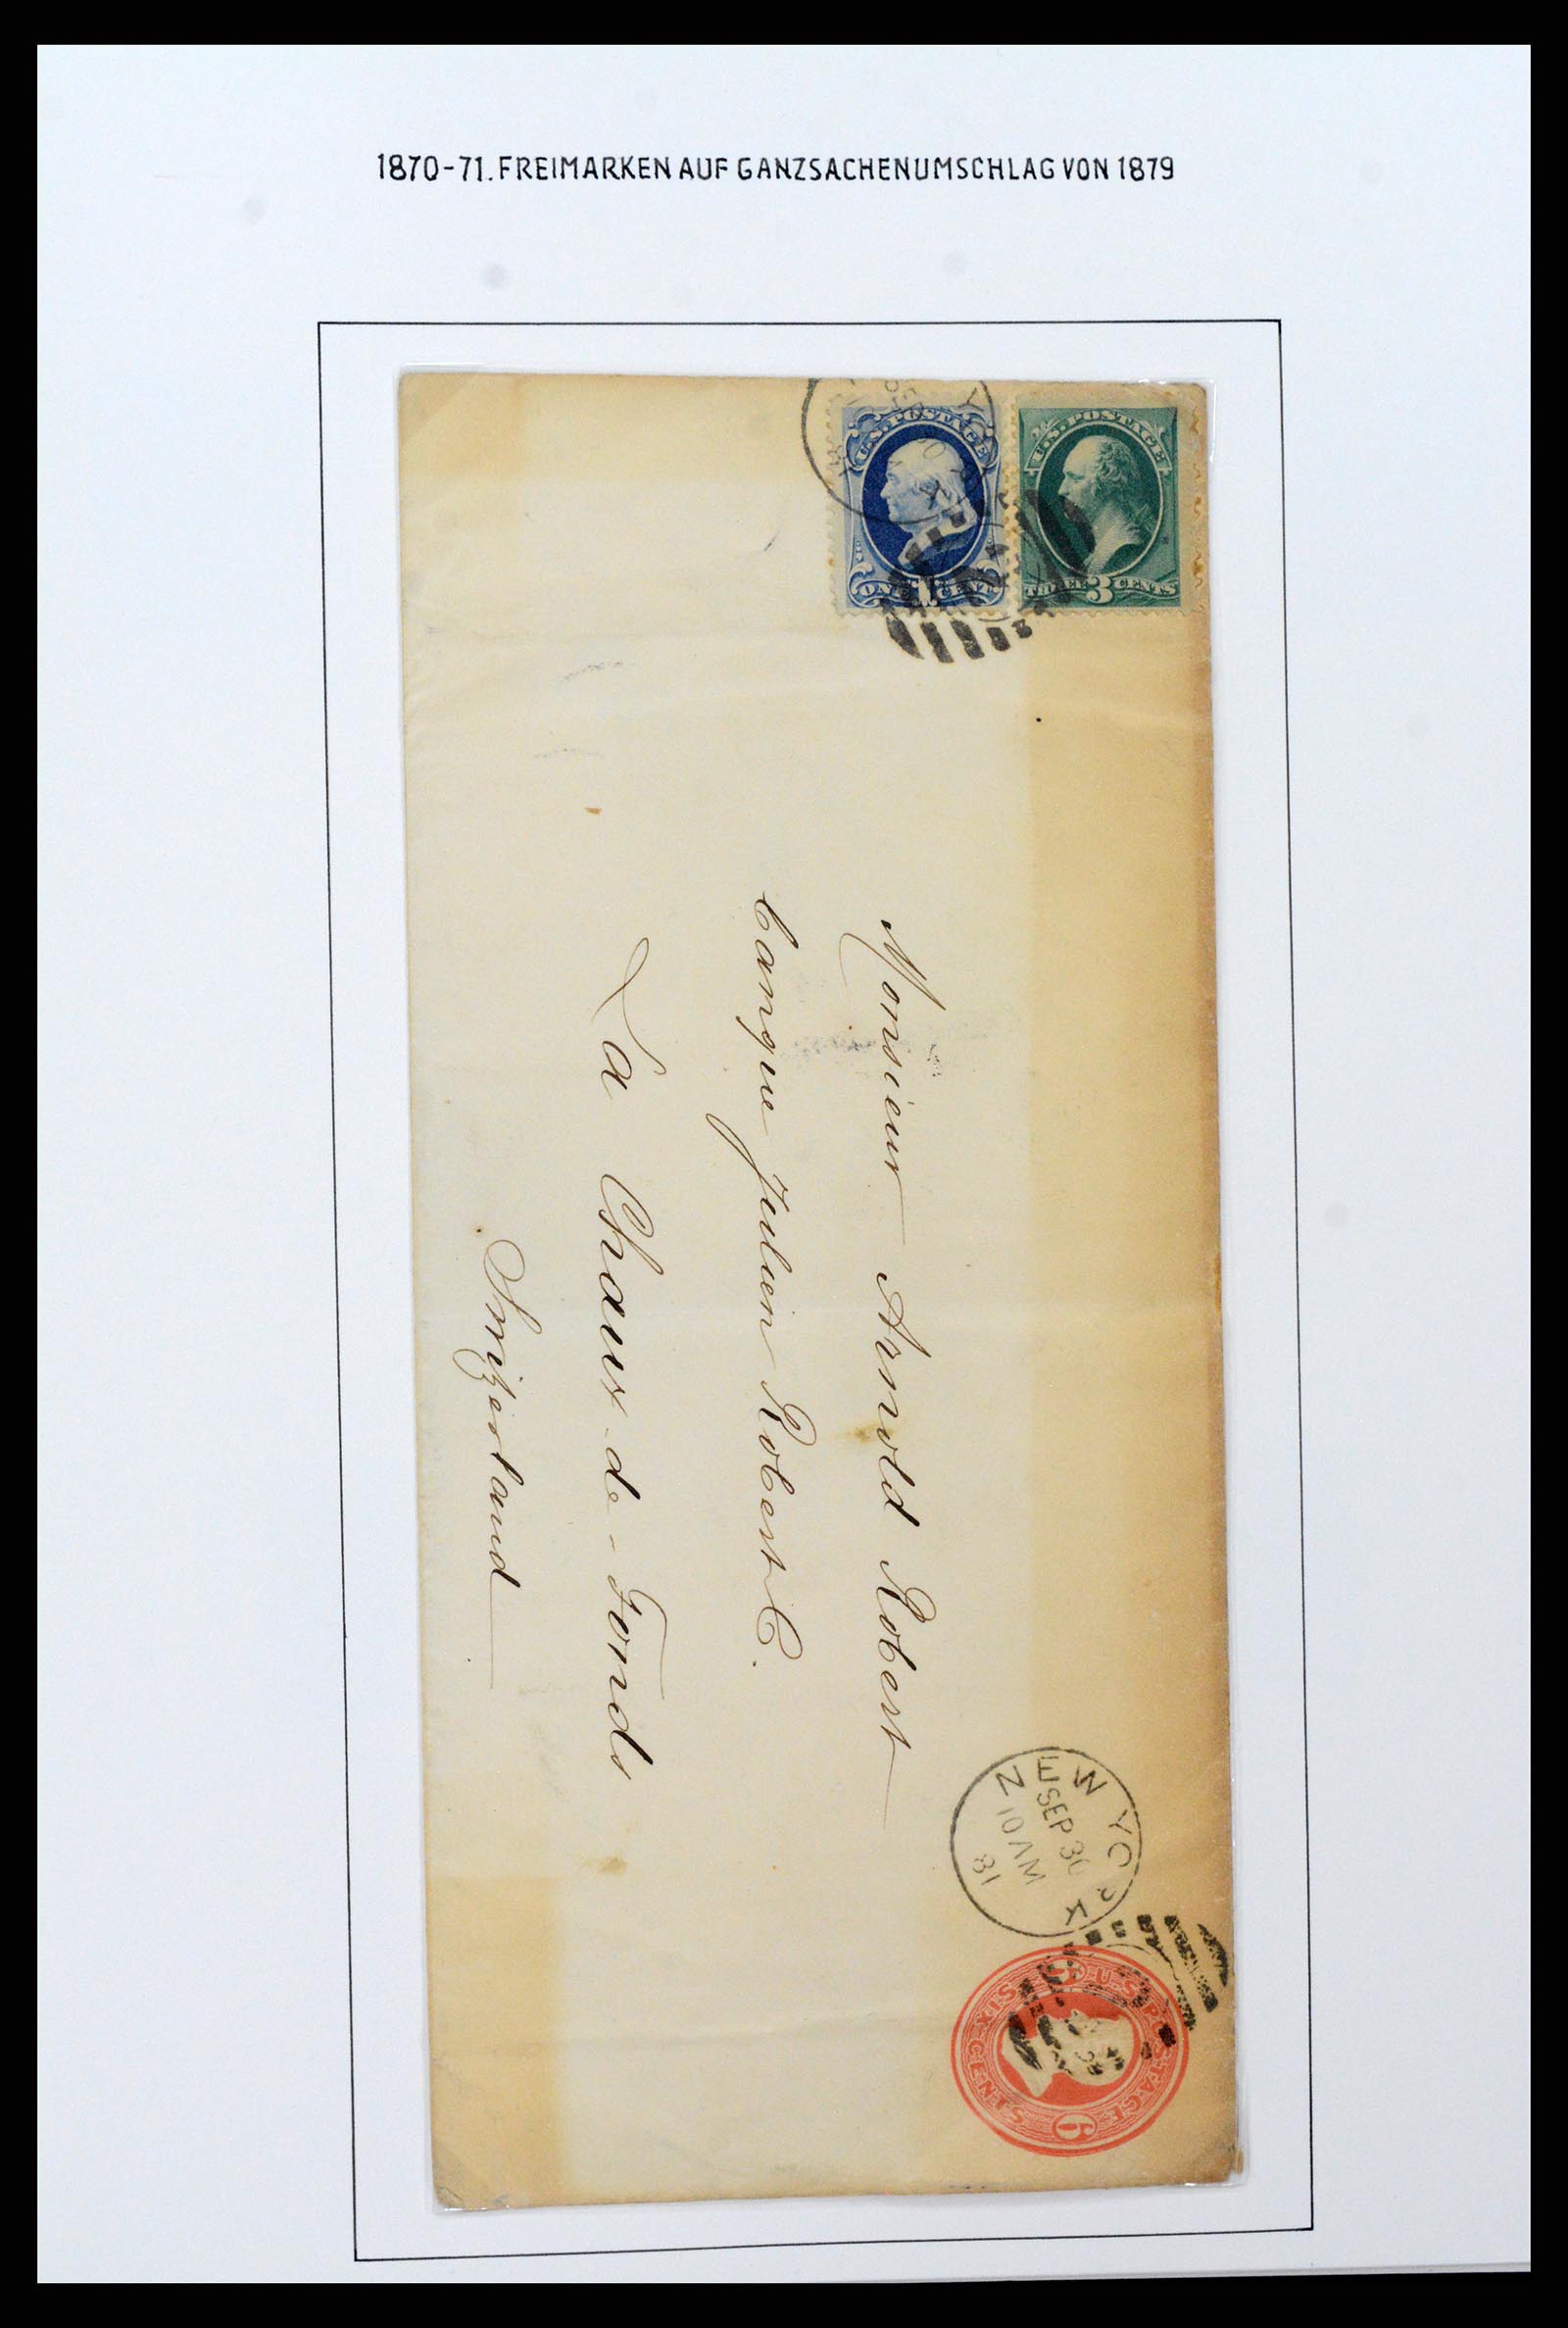 1870-71. FREIMARKEN AUF GANZSACHENUMSCHLAG VON 1879
U.S. POSTAGE
ONE 1 CENT
U.S. POSTAGE
THREE 3 CENTS
Monsieur Arnold Robert
banque Julien Robert C.
La Chaux-de-Fonds
Switzerland
NEW YORK
SEP 30
10 AM
81
U.S. POSTAGE
6
SIX CENTS
6